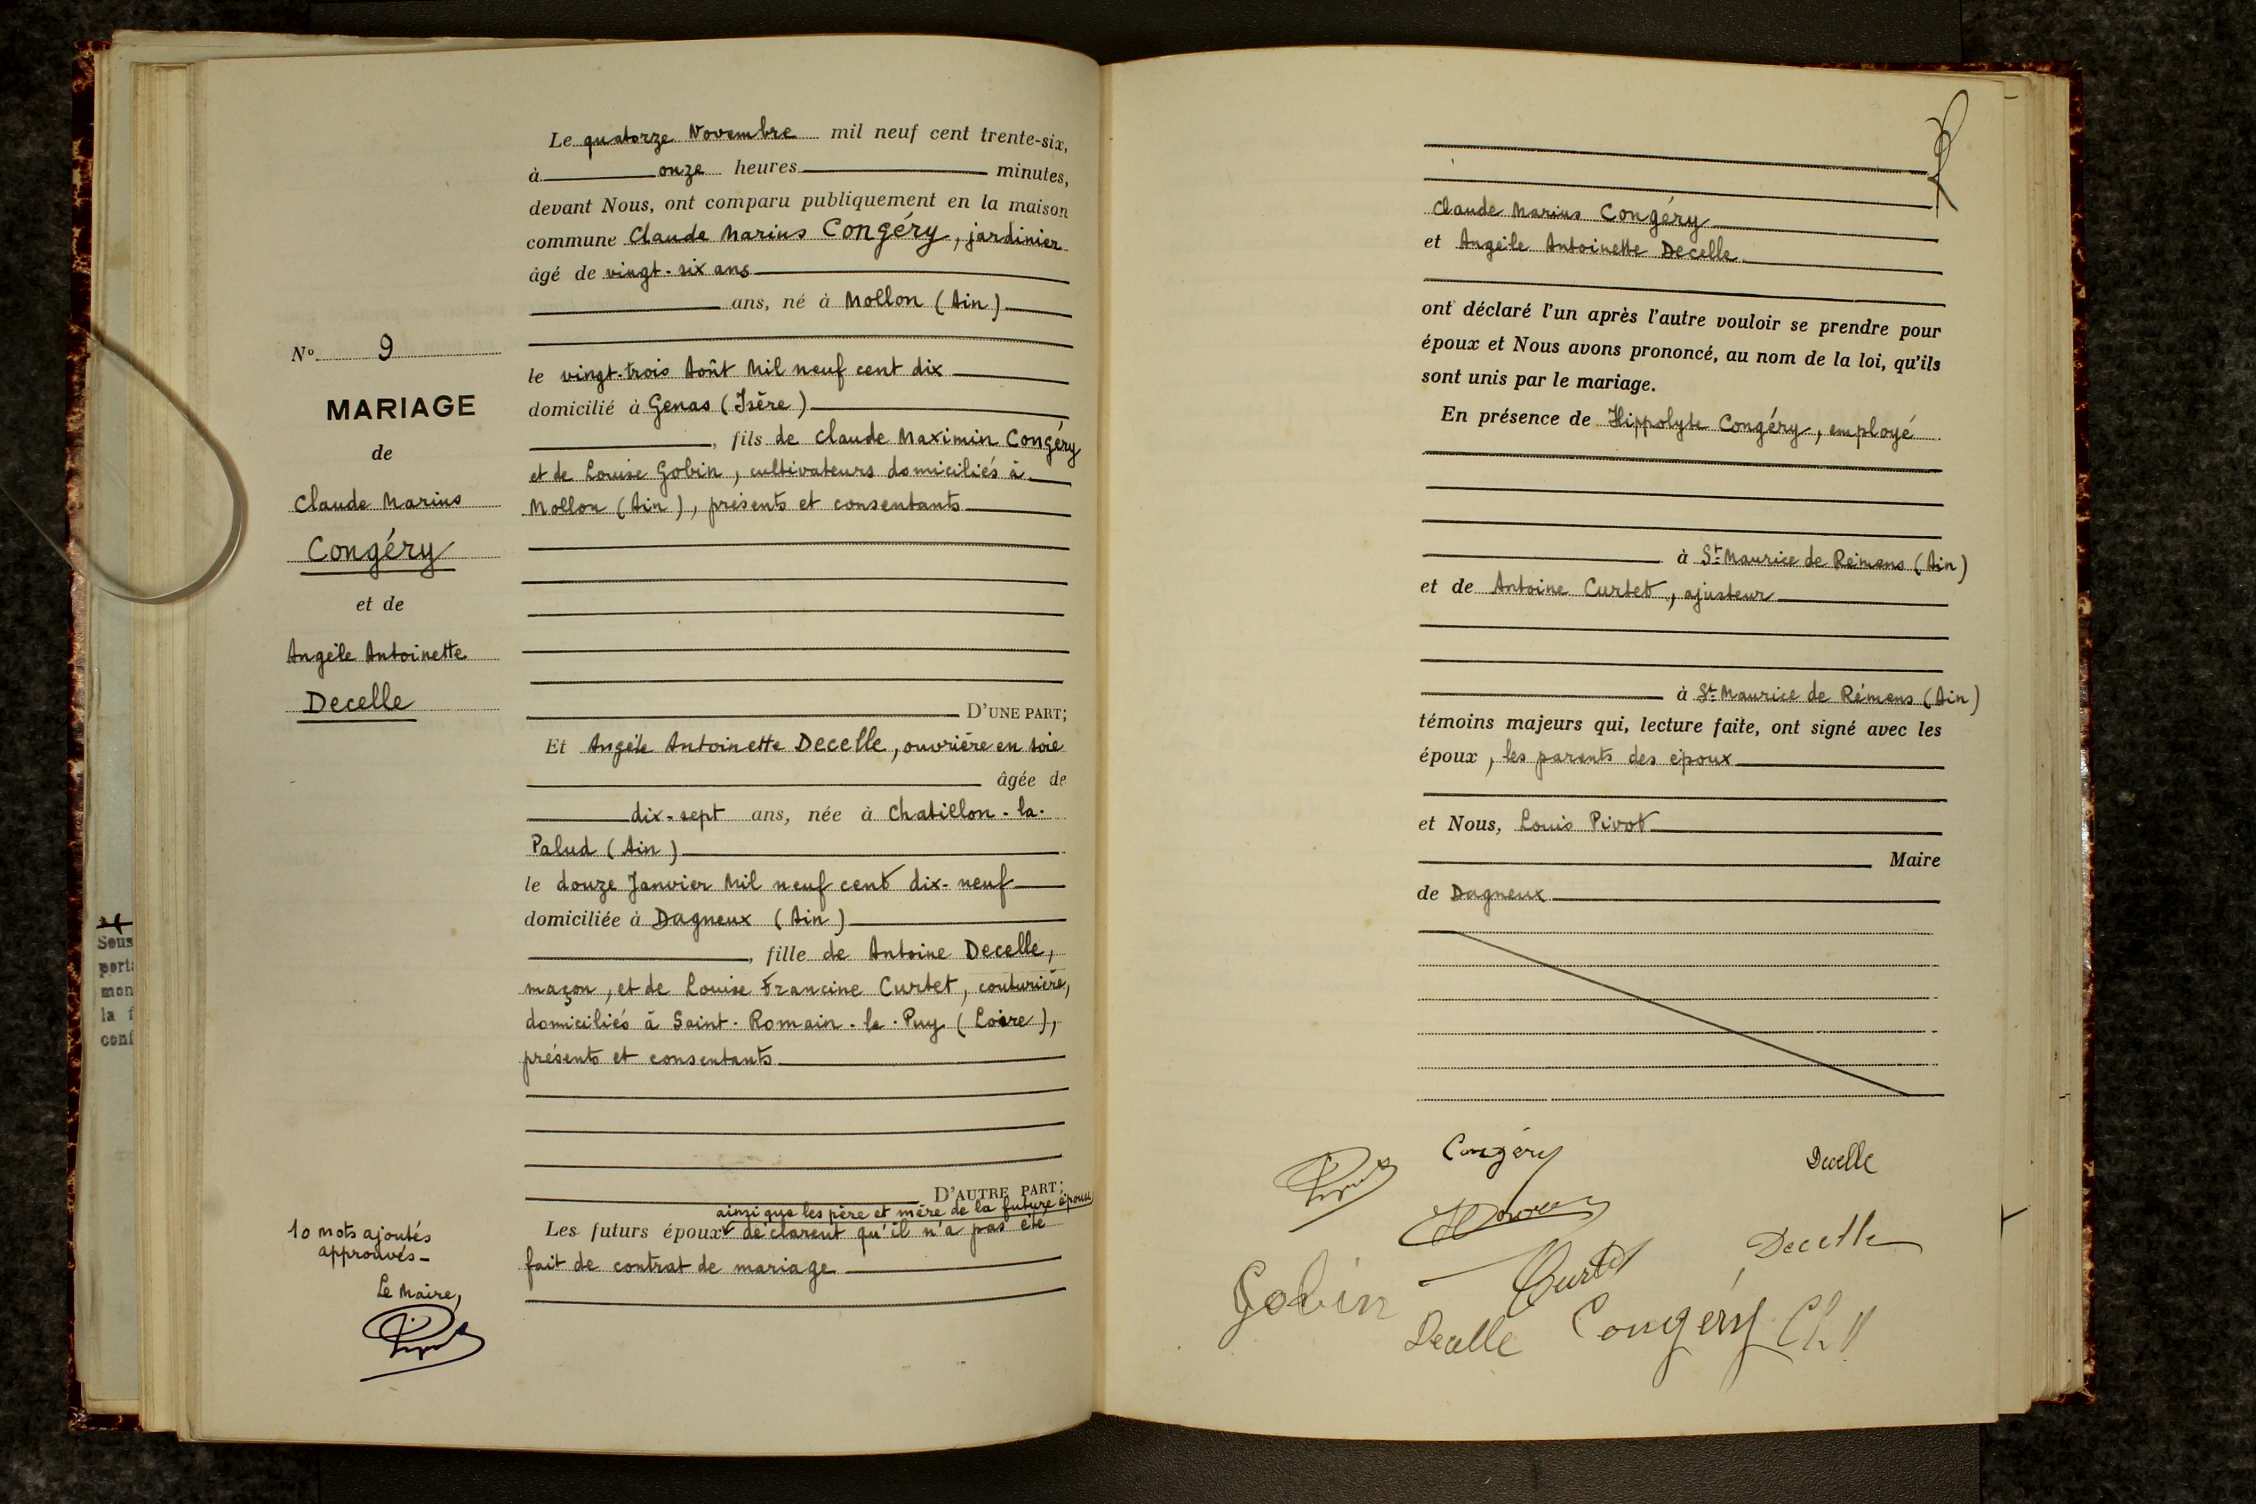 Le quatorze Novembre mil neuf cent trente-six,
à onze heures minutes,
devant Nous, ont comparu publiquement en la maison
commune Claude Marius Congéry, jardinier
âgé de vingt-six ans
ans, né à Mollon (Ain)
le vingt-trois Août Mil neuf cent dix
domicilié à Genas (Isère)
, fils de Claude Maximin Congéry
et de Louise Gobin, cultivateurs domiciliés à
Mollon (Ain), présents et consentants
D'UNE PART;
Et Angèle Antoinette Decelle, ouvrière en soie
âgée de
dix-sept ans, née à Chatillon-la-
Palud (Ain)
le douze Janvier Mil neuf cent dix-neuf
domiciliée à Dagneux (Ain)
, fille de Antoine Decelle,
maçon, et de Louise Francine Curtet, couturière,
domiciliés à Saint-Romain-le-Puy (Loire),
présents et consentants
D'AUTRE PART;
ainsi que les père et mère de la future épouse
Les futurs époux déclarent qu'il n'a pas été
fait de contrat de mariage
No 9
MARIAGE
de
Claude Marius
Congéry
et de
Angèle Antoinette
Decelle
10 mots ajoutés
approuvés_
Le Maire,
Sous
porta
men
la f
conf
Claude Marius Congéry
et Angèle Antoinette Decelle
ont déclaré l'un après l'autre vouloir se prendre pour
époux et Nous avons prononcé, au nom de la loi, qu'ils
sont unis par le mariage.
En présence de Hippolyte Congéry, employé
à St Maurice de Rémens (Ain)
et de Antoine Curtet, ajusteur
à St Maurice de Rémens (Ain)
témoins majeurs qui, lecture faite, ont signé avec les
époux, les parents des époux
et Nous, Louis Pivot
Maire
de Dagneux
Congéry
Decelle
Curtet
Decelle
Gobin
Decelle
Congéry Cl